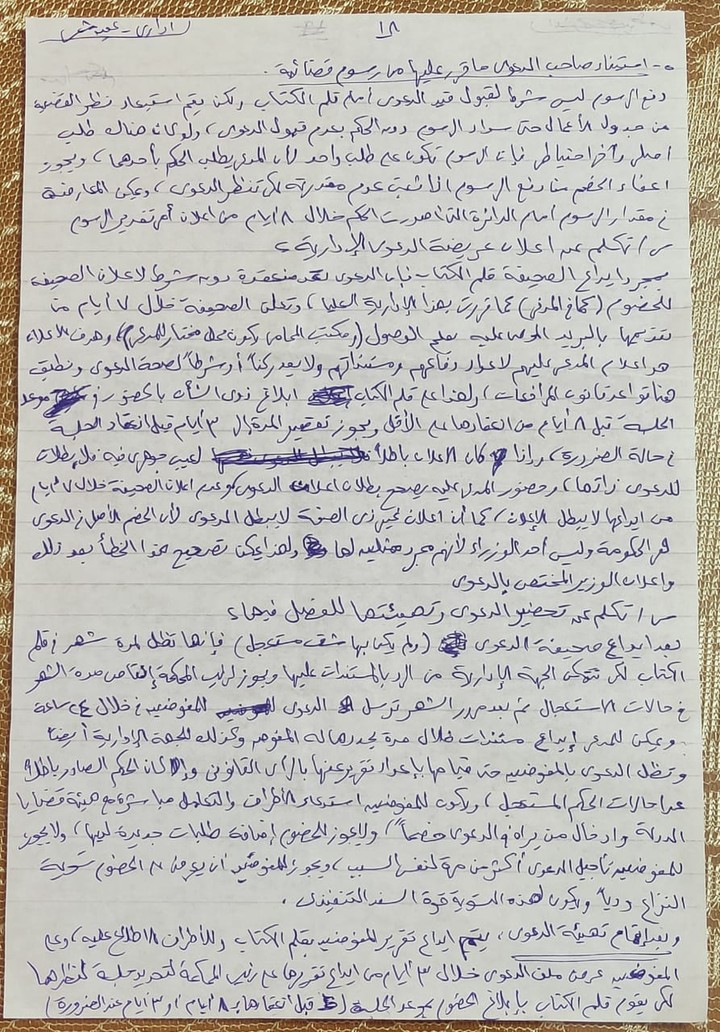 ١٨
إداري - عين شمس
٥- استيفاء صاحب الدعوى ما قرر عليها من رسوم قضائية .
دفع الرسوم ليس شرط لقبول قيد الدعوى أمام قلم الكتاب ولكن يتم استبعاد نظر القضية
من جدول الأعمال حتى سداد الرسوم دون الحكم بعدم قبول الدعوى، ولو كان هناك طلب
أصلي وآخر احتياطي فإن الرسوم تكون على طلب واحد لأن المدعي يطلب الحكم بأحدهما، ويجوز
إعفاء الخصم من دفع الرسوم إذا ثبت عدم مقدرته لكي تنظر الدعوى، ويمكن المعارضة
في مقدار الرسوم أمام الدائرة التي أصدرت الحكم خلال ٨ أيام من إعلان أمر تقدير الرسوم
س/ تكلم عن إعلان عريضة الدعوى الإدارية ؟
بمجرد إيداع الصحيفة قلم الكتاب فإن الدعوى تعد منعقدة دون شرط لإعلان الصحيفة
للخصوم (كما في المدني) كما قررت بهذا الإدارية العليا، وتعلن الصحيفة خلال ٧ أيام من
تقديمها بالبريد الموصى عليه بعلم الوصول (ومكتب المحامي يكون محل مختار للمدعي) وهدف الإعلان
هو إعلام المدعى عليهم لإعداد دفاعهم ومستنداتهم ولا يعد ركناً أو شرطاً لصحة الدعوى وتطبق
هنا قواعد قانون المرافعات، ولهذا على قلم الكتاب إبلاغ ذوي الشأن بالحضور و موعد
الجلسة قبل ٨ أيام من انعقادها على الأقل ويجوز تقصير المدة إلى ٣ أيام قبل انعقاد الجلسة
في حالة الضرورة، وإذا كان الإعلان باطلاً لعيب جوهري فيه فلا بطلان
للدعوى ذاتها، وحضور المدعى عليه يصحح بطلان إعلان الدعوى كو عدم إعلان الصحيفة خلال ٧ أيام
من إيداعها لا يبطل الإعلان، كما أن إعلان غير ذي الصفة لا يبطل الدعوى لأن الخصم الأصلي في الدعوى
هو الحكومة وليس أحد الوزراء لأنهم مجرد ممثلين لها ولهذا يمكن تصحيح هذا الخطأ بعد ذلك
وإعلان الوزير المختص بالدعوى
س/ تكلم عن تحضير الدعوى وتهيئتها للفصل فيها ؟
بعد إيداع صحيفة الدعوى (ولم يكن بها شق مستعجل) فإنها تظل لمدة شهر في قلم
الكتاب لكي تتمكن الجهة الإدارية من الرد بالمستندات عليها ويجوز لرئيس المحكمة إنقاص مدة الشهر
في حالات الاستعجال ثم بعد مرور الشهر ترسل الدعوى للمفوضين في خلال ٢٤ ساعة
ويمكن للمدعي إيداع مستندات خلال مدة يحددها له المفوض وكذلك للجهة الإدارية أيضاً
وتظل الدعوى بالمفوضين حتى قيامها بإعداد تقرير عنها بالرأي القانوني وإلا كان الحكم الصادر باطلاً
عدا حالات الحكم المستعجل، ويكون للمفوضين استدعاء الأطراف والتعامل مباشرة مع هيئة قضايا
الدولة وإدخال من يراه في الدعوى خصماً) ولا يجوز للخصوم إضافة طلبات جديدة لديها، ولا يجوز
للمفوضين تأجيل الدعوى أكثر من مرة لنفس السبب، ويجوز للمفوضين أن يعرض على الخصوم تسوية
النزاع ودياً ويكون لهذه التسوية قوة السند التنفيذي .
وبعد إتمام تهيئة الدعوى، يتم إيداع تقرير المفوضين بقلم الكتاب وللأطراف الاطلاع عليه، وعلى
المفوضين عرض ملف الدعوى خلال ٣ أيام من إيداع تقريرها على رئيس المحكمة لتحديد جلسة لنظرها
لكي يقوم قلم الكتاب بإبلاغ الخصوم بموعد الجلسة (قبل انعقادها بـ ٨ أيام أو ٣ أيام عند الضرورة)